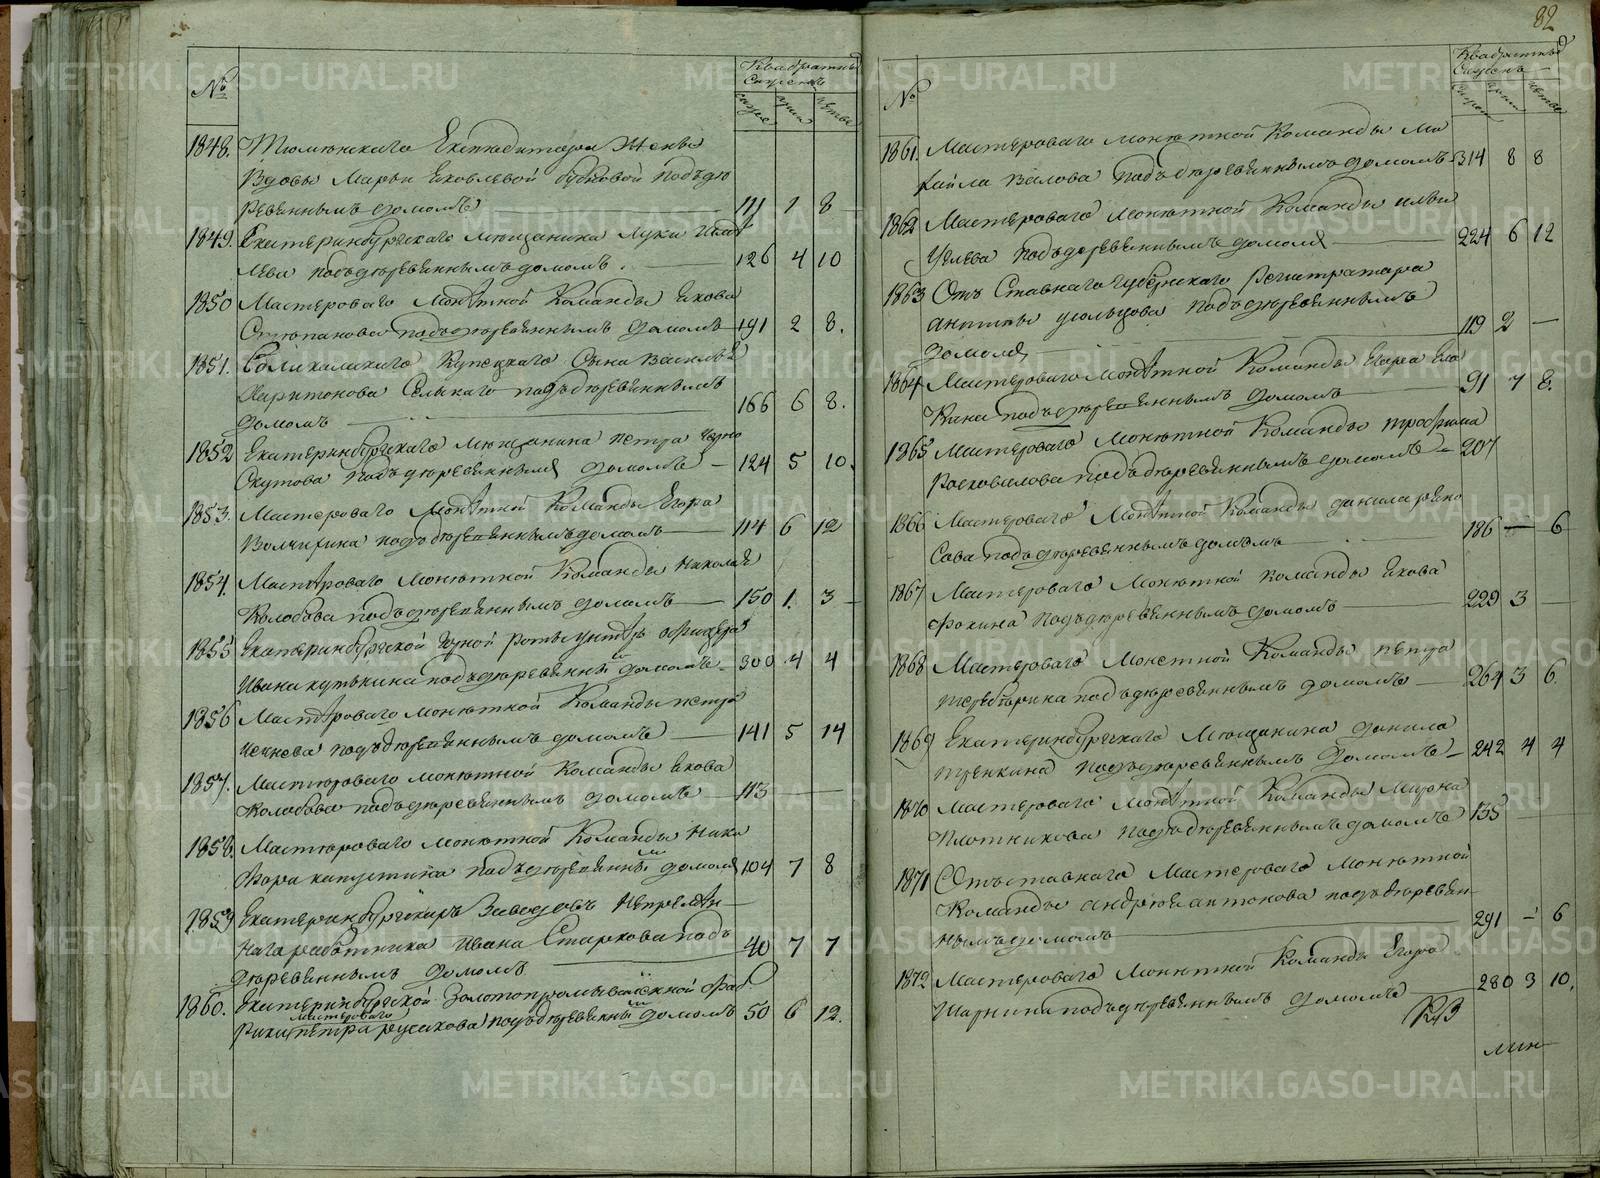 82
№
Квадратныхъ
Саженъ
1848. Тюменскаго Експедитора Жены
Вдовы Марьи Яковлевой подъ де
ревяннымъ домомъ 111 1 8
1849. Екатеринбургскаго мещанина Луки
лева подъ деревяннымъ домомъ. 126 4 10
1850 Мастероваго Монетной Команды Якова
Степанова подъ деревяннымъ домомъ 191 2 8.
1851. Соликамскаго Купецкаго Сына Василья
Харитонова подъ деревяннымъ
домомъ 166 6 8.
1852 Екатеринбургскаго мещанина Петра Черно
Скутова подъ деревяннымъ домомъ 124 5 10.
1853. Мастероваго Монетной Команды Егора
Волчихина подъ деревяннымъ домомъ 114 6 12
1854. Мастероваго Монетной Команды Николая
Колобова подъ деревяннымъ домомъ 150 1. 3
1855 Екатеринбургской Горной роты унтеръ офицера
Ивана кутькина подъ деревяннымъ домомъ 300 4 4
1856 Мастероваго монетной Команды петра
подъ деревяннымъ домомъ 141 5 14
1857. Мастероваго монетной Команды Якова
Колобова подъ деревяннымъ домомъ 113
1858. Мастероваго монетной Команды Ники
фора капустина подъ деревяннымъ домомъ 104 7 8
1859 Екатеринбургскихъ Заводовъ Непремен
наго работника Ивана Старкова подъ 40 7 7
деревяннымъ домомъ
1860. Екатеринбургской Золотопромывайской фаб
мастероваго
рики петра русакова подъ деревяннымъ домомъ 50 6 12.
№
Квадратныхъ
Саженъ
1861. Мастероваго монетной Команды Ми
хайла Вялова подъ деревяннымъ домомъ 314 8 8
1862 Мастероваго монетной Команды ильи
подъ деревяннымъ домомъ 224 6 12
1863 Отъ Ставнаго Губернскаго Регистратора
антипы усольцова подъ деревяннымъ
домомъ 119 2 —
1864 Мастероваго монетной Команды Егора
подъ деревяннымъ домомъ 91 7 8.
1865 Мастероваго монетной Команды трофима
Росковалова подъ деревяннымъ домомъ 207
1866 Мастероваго Монетной Команды данила
подъ деревяннымъ домомъ 186 — 6
1867 Мастероваго Монетной команды Якова
фокина подъ деревяннымъ домомъ 229 3 —
1868 Мастероваго Монетной Команды петра
подъ деревяннымъ домомъ 264 3 6
1869 Екатеринбургскаго Мещанина данила
подъ деревяннымъ домомъ 242 4 4
1870 Мастероваго Монетной Команды Мирона
Плотникова подъ деревяннымъ домомъ 135 —
1871 Отъ ставнаго Мастероваго Монетной
Команды андрея антонова подъ деревян
нымъ домомъ 291 — 6
1872 Мастероваго Монетной Команды Егора
подъ деревяннымъ домомъ 280 3 10.
METRIKI.GASO-URAL.RU